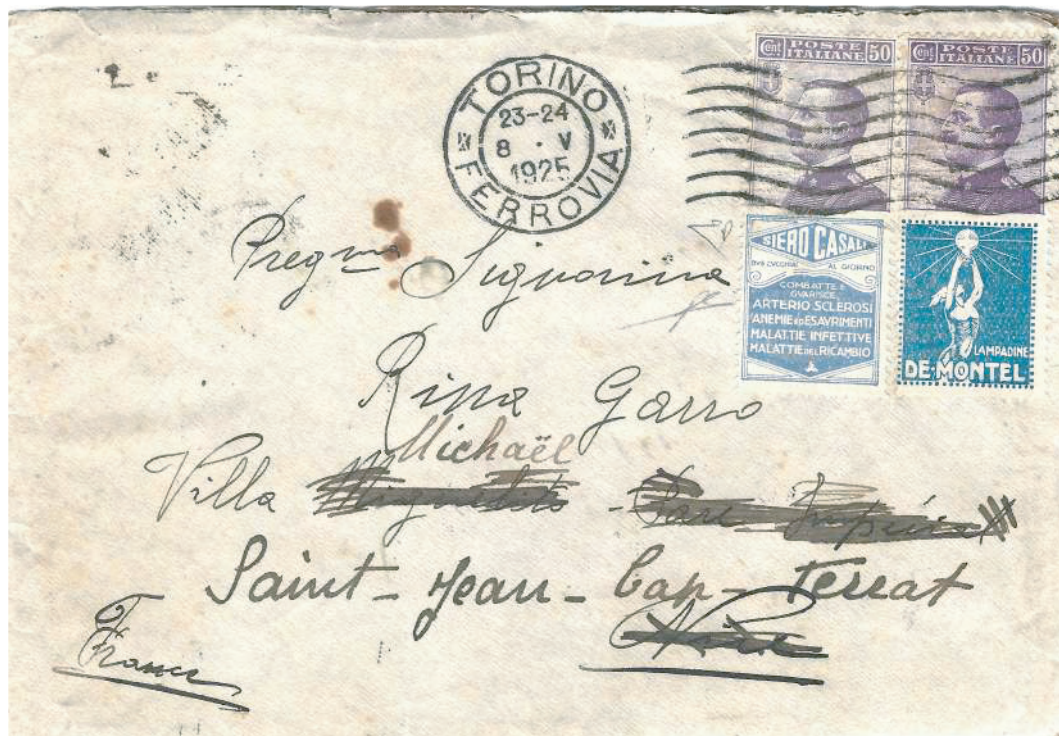 Cent POSTE ITALIANE 50
Cent POSTE ITALIANE 50
TORINO
23-24
8 · V
1925
FERROVIA
SIERO CASALI
DUE CUCCHIAI AL GIORNO
COMBATTE E
GUARISCE
ARTERIO SCLEROSI
ANEMIE ED ESAVRIMENTI
MALATTIE INFETTIVE
MALATTIE DEL RICAMBIO
LAMPADINE
DE·MONTEL
Pregma Signorina
Rina Garro
Michaël
Villa
Saint-Jean-Cap-Ferrat
Nice
France